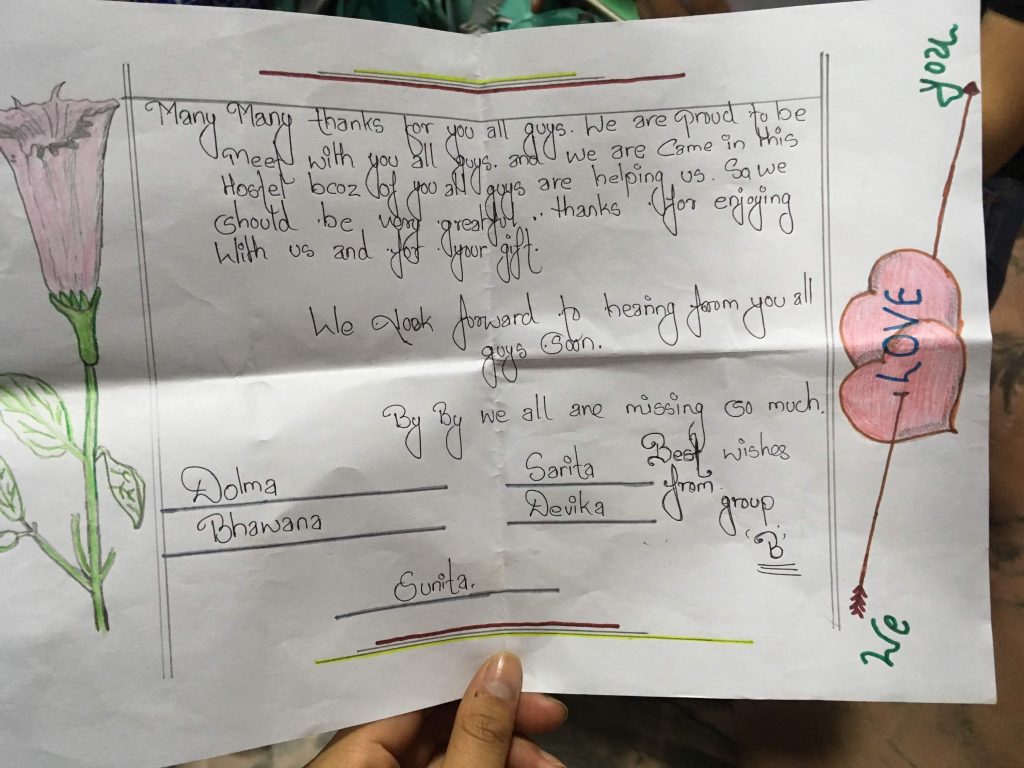 Many Many thanks for you all guys. We are proud to be
meet with you all guys. and we are came in this
Hostel bcoz of you all guys are helping us. So we
should be very greatful.. thanks for enjoying
With us and for your gift.
We look forward to hearing from you all
guys soon.
By By we all are missing so much.
Best wishes
from
group
'B'
Dolma
Bhawana
Sarita
Devika
Sunita.
We
LOVE
you